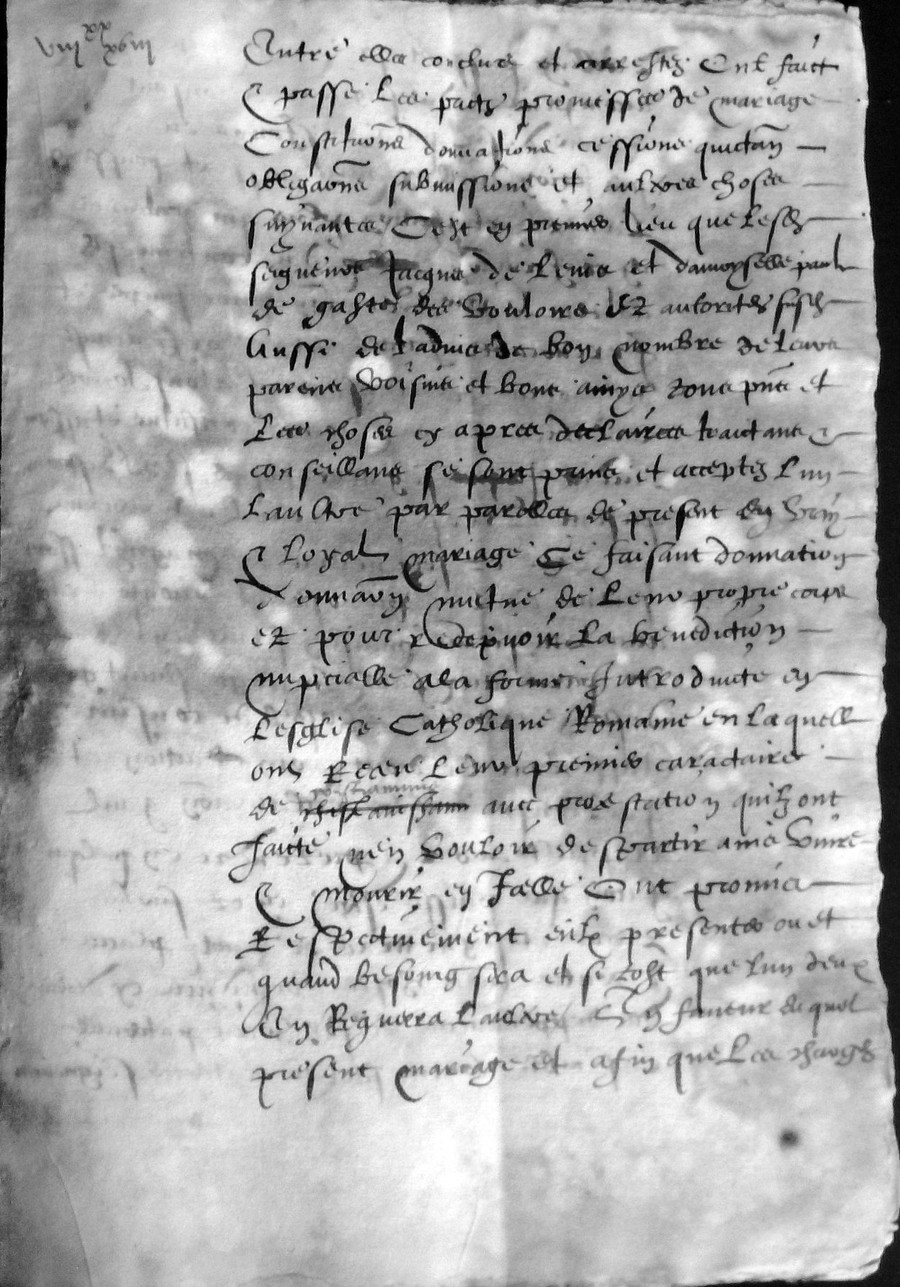 viii xx xviii
Entre elles conclues et arrestez Ont faict
& passé les pactz promesses de mariage
Constitutions donnations cessions quictan
obligaons submissions et aultres choses
suyvantes Cest en premier lieu que lesd
seigneur Jacques de Levis et damoyselle paul
de gaste des vouloirs et autorites susd
Aussi de ladvis de bon nombre de leurs
parens voisins et bons amys tous pns et
les choses cy apres declairees traictans &
conseillans se sont prins et acceptez lun
laultre par parolles de present en vray
& loyal mariage Ce faisant donnation
donnaon mutue de leur propre corps
et pour recepvoir la benediction
nupcialle a la forme Introduicte en
lesglise Catholique Romaine en laquelle
ont Receu leur premier caractaire
de christianisme avec protestation quilz ont
faicte nen vouloir despartir ains vivre
& mourir en Jcelle Ont promis
Respectivement eulx presenter ou et
quand besoing sera et si tost que lun deux
En Requerra laultre En faveur duquel
present mariage et afin que les charges